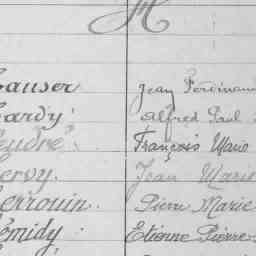 H
auser Jean Ferdinand
ardy Alfred Paul
eudré François Marie
ervy Jean Marie
errouin Pierre Marie
émidy Etienne Pierre